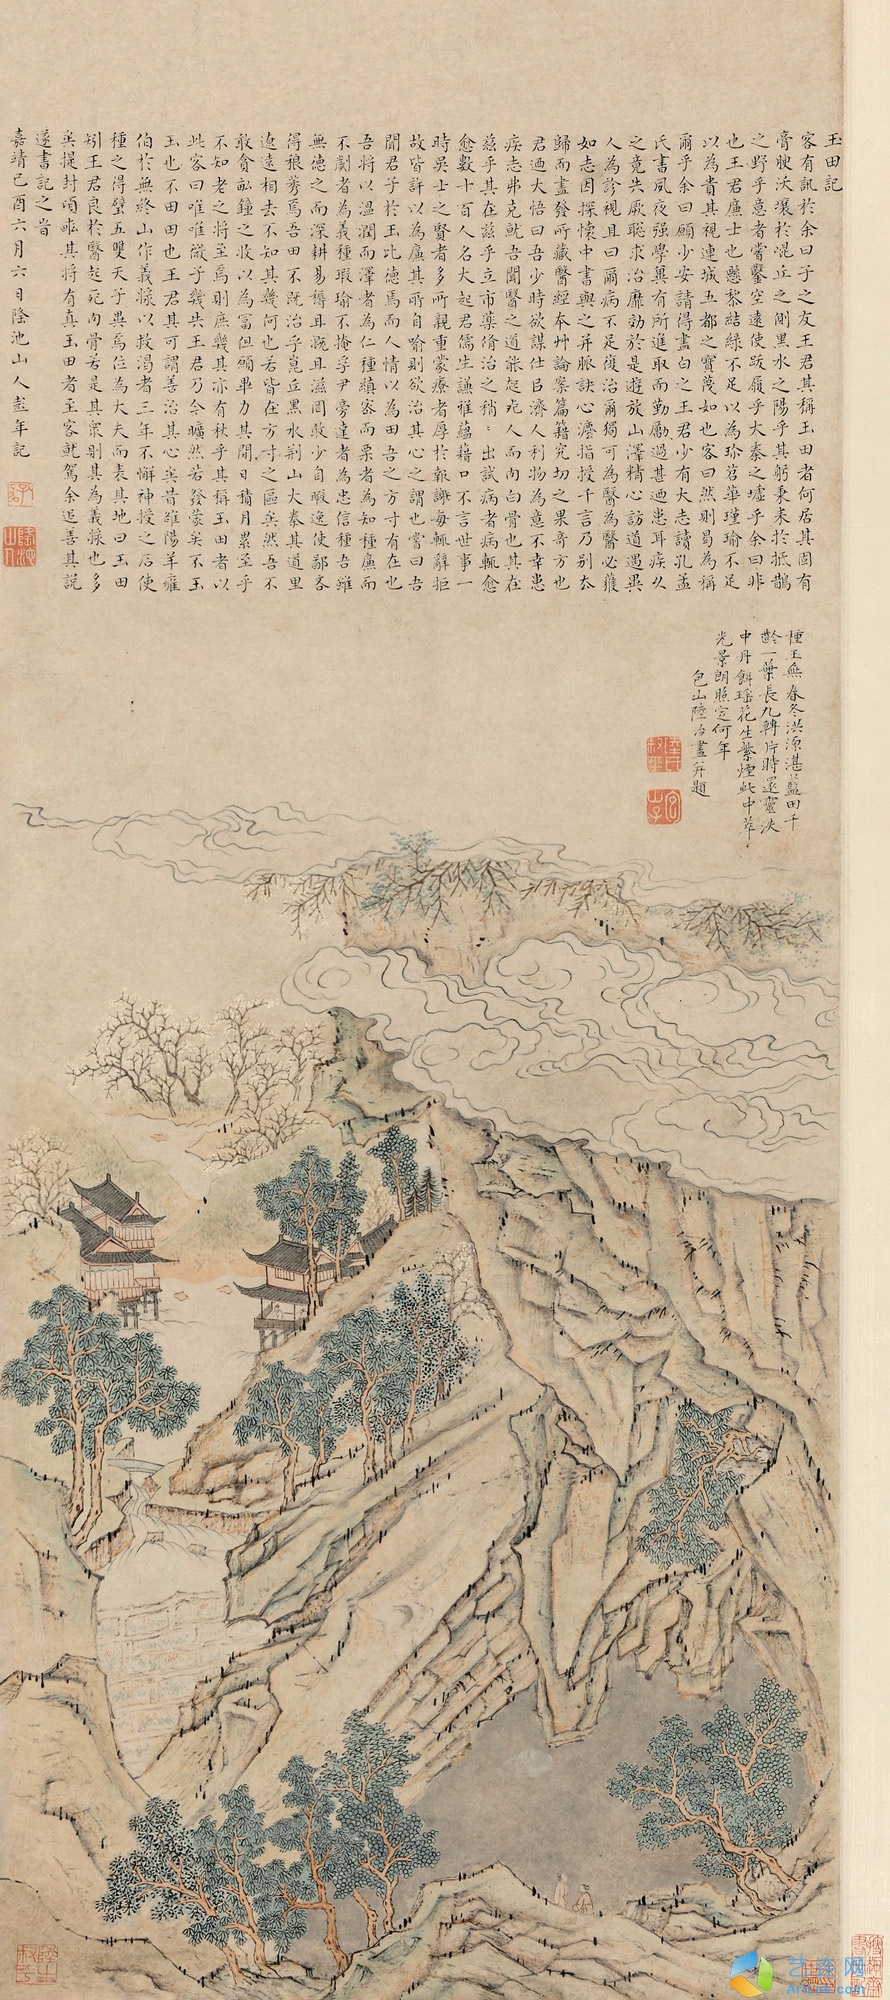 玉田記
客有訊於余曰子之友王君其稱玉田者何居其固有
膏腴沃壤於崑丘之側黑水之陽乎其躬秉耒於抵鵲
之野乎意者嘗鑿空遠使跋履乎大秦之墟乎余曰非
也王君廉士也懸黎結綠不足以為珍苕華瑾瑜不足
以為貴其視連城五都之寶蔑如也客曰然則曷為稱
爾乎余曰顧少安請得盡白之王君少有大志讀孔孟
氏書夙夜強學冀有所進取而勤勵過甚迺患耳疾久
之竟失厥聰求治靡効於是遊放山澤精心訪道遇異
人為診視且曰爾病不足復治爾獨可為醫為醫必獲
如志因探懷中書與之并脈訣心濾指授千言乃別去
歸而盡發所藏醫經本艸論案篇籍究切之果奇方也
君迺大悟曰吾少時欲謀仕臣濟人利物為意不幸患
疾志弗克就吾聞醫之道能起死人而肉白骨也其在
茲乎其在茲乎立市藥脩治之稍〻出試病者病輒愈
愈數十百人名大起君儒生謙雅蘊藉口不言世事一
時吳士之賢者多所親重蒙療者厚於報謝每輒辭拒
故皆許以為廉其所自喻則欲治其心之謂也嘗曰吾
聞君子於玉比德焉而人情以為田吾之方寸有在也
吾將以溫潤而澤者為仁種縝密而栗者為知種廉而
不劌者為義種瑕瑜不掩孚尹旁達者為忠信種吾雖
無德之而深耕易耨且溉且滋罔敢少自暇逸使鄙吝
得稂莠焉吾田不既治乎崑丘黑水荆山大秦其道里
遼遠相去不知其幾何也若皆在方寸之區矣然吾不
敢貪畝鐘之收以為富但願畢力其間日積月累至乎
不知老之將至焉則庶幾其亦有秋乎其稱玉田者以
此客曰唯唯微子幾失王君乃今曠然若發蒙矣不玉
玉也不田田也王君其可謂善治其心矣昔雒陽羊雍
伯於無終山作義漿以救渴者三年不懈神授之石使
種之得璧五雙天子異焉位為大夫而表其地曰玉田
矧王君良於醫起死肉骨若是其衆則其為義漿也多
矣提封頃畝其將有真玉田者至客就駕余迋善其說
遂書記之旹
嘉靖己酉六月六日隆池山人彭年記
種玉無春冬洪源湛藍田千
齡一葉長九轉片時還靈泱
中丹餌瑤花生紫煙此中萃
光景朗照定何年
包山陸治畫并題
陸氏叔平
包山子
隆池山人
艺连网
ArtLnk.Com